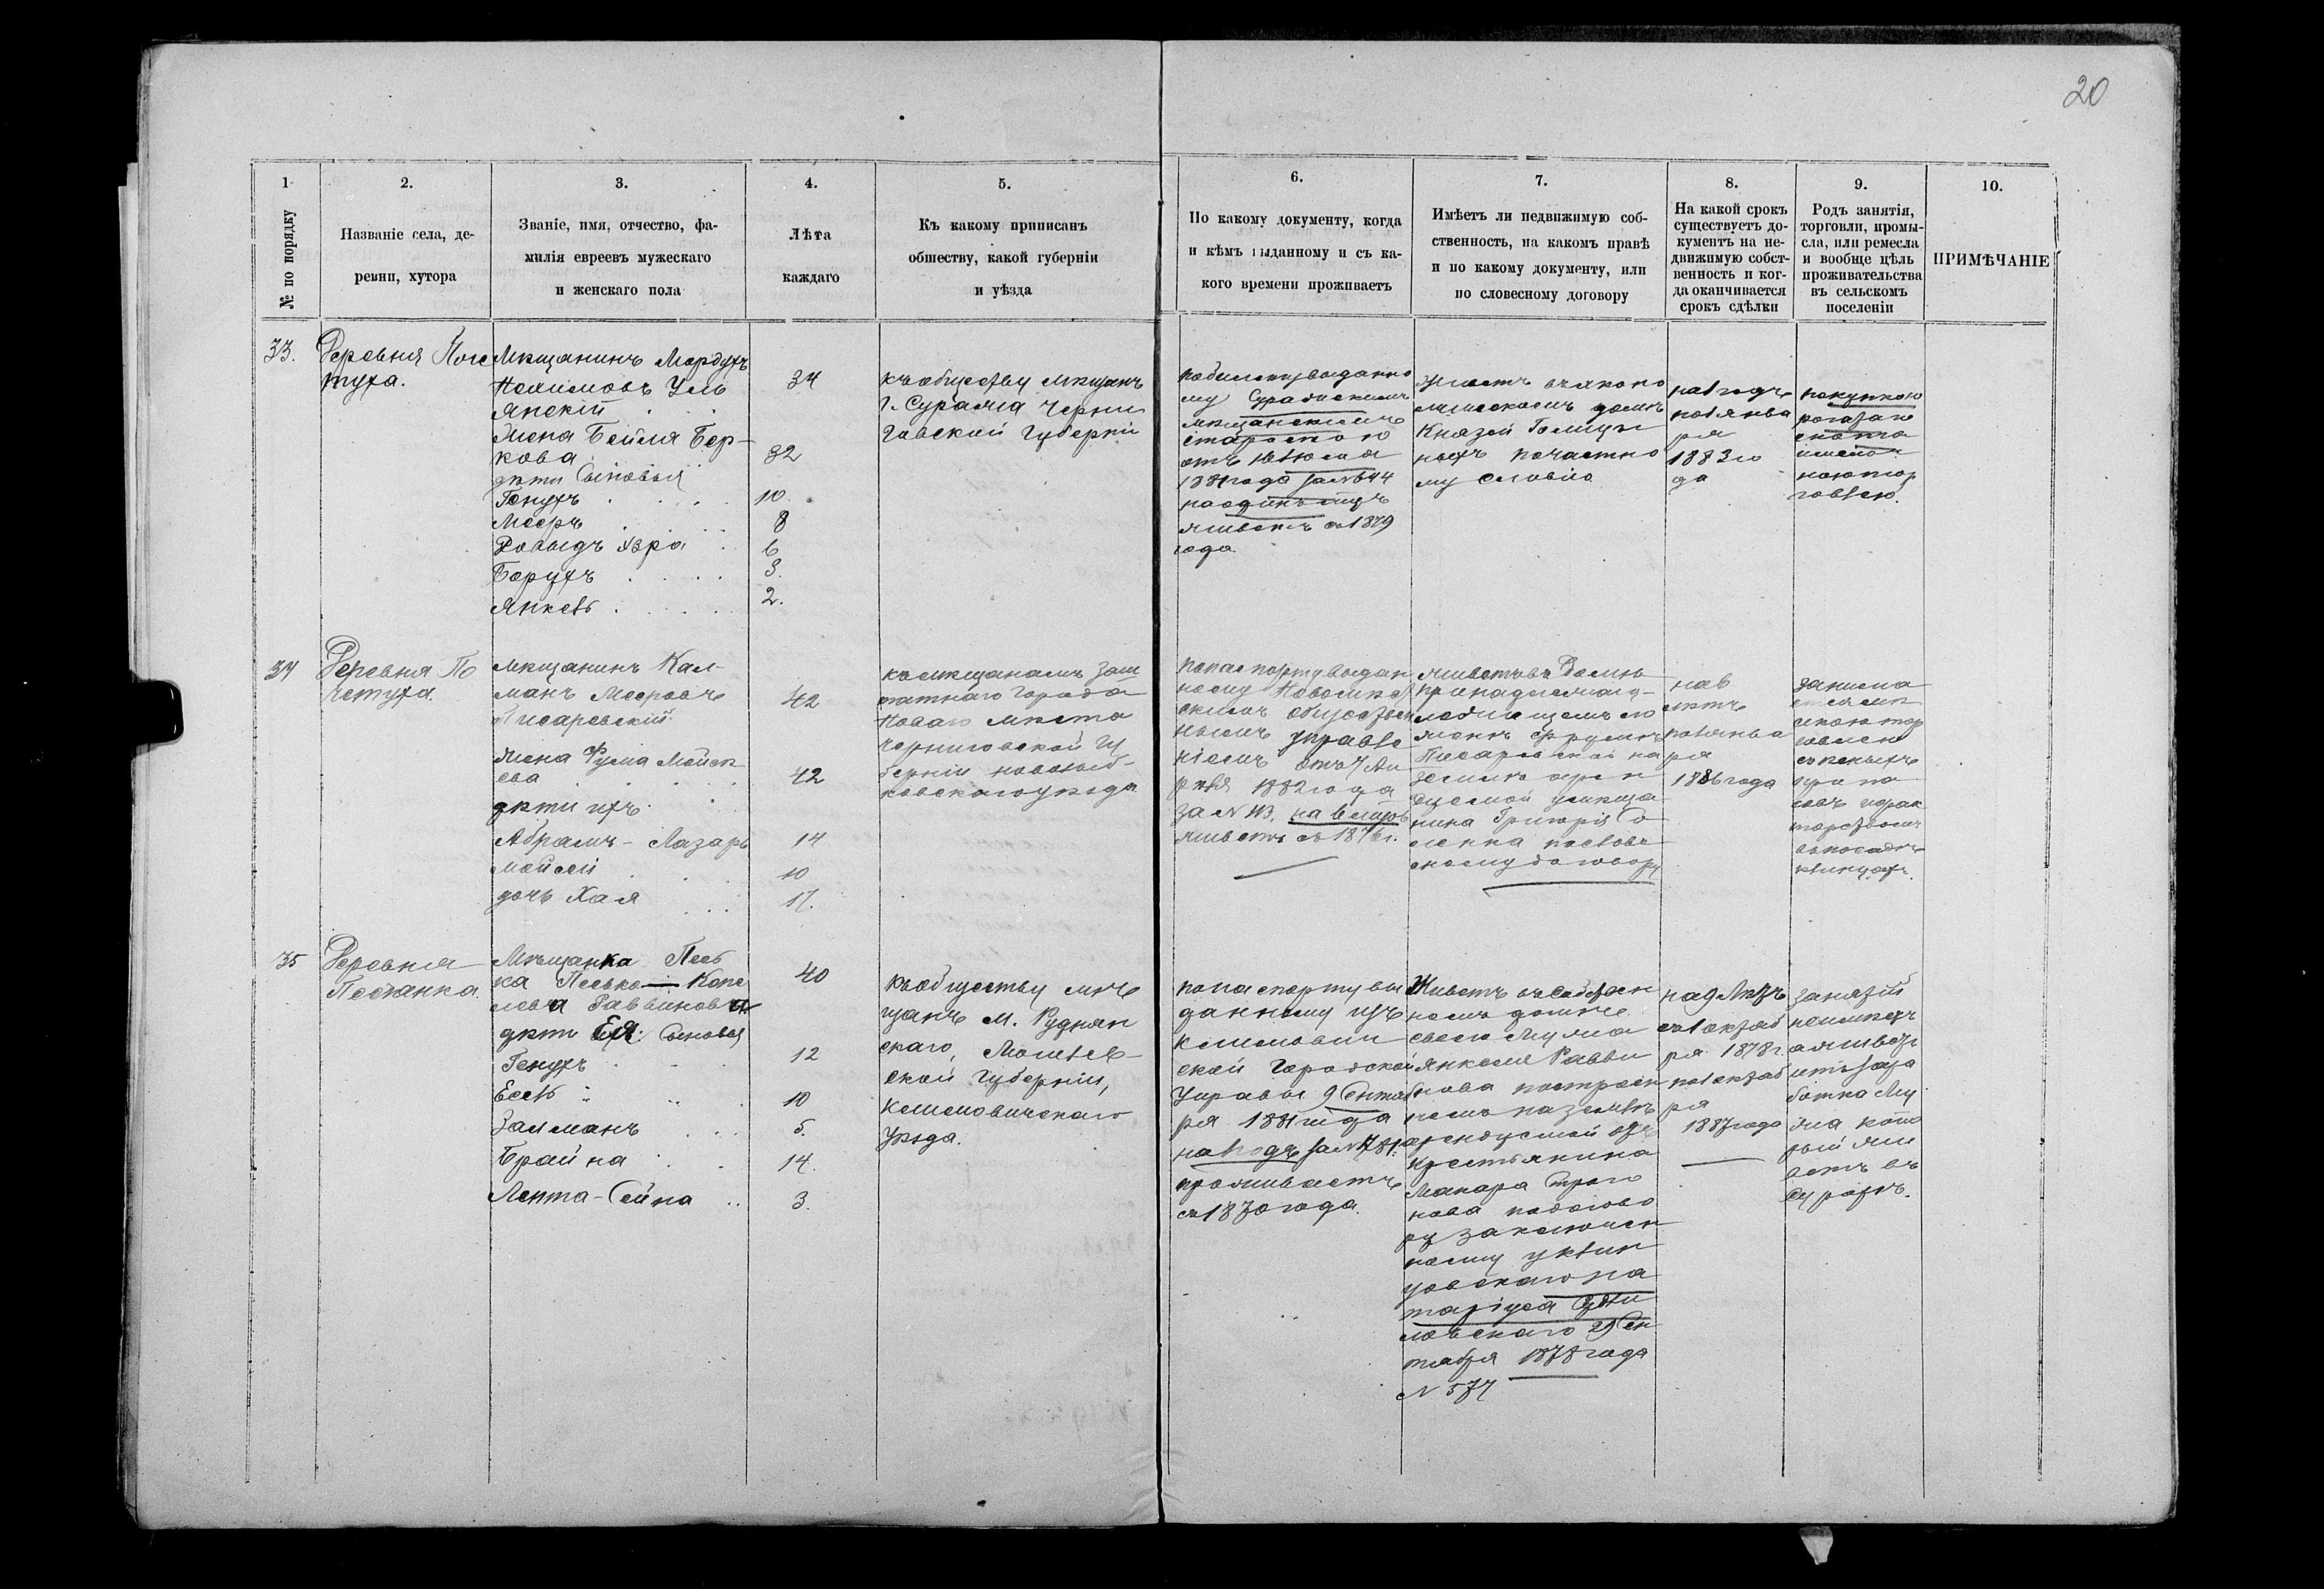 20
1
№ по порядку
2.
Названіе села, де-
ревни, хутора
3.
Званіе, имя, отчество, фа-
милія евреевъ мужескаго
и женскаго пола
4.
Лѣта
каждаго
5.
Къ какому приписанъ
обществу, какой губерніи
и уѣзда
6.
По какому документу, когда
и кѣмъ выданному и съ ка-
кого времени проживаетъ
7.
Имѣетъ ли недвижимую соб-
ственность, на какомъ правѣ
и по какому документу, или
по словесному договору
8.
На какой срокъ
существуетъ до-
кументъ на не-
движимую собст-
венность и ког-
да оканчивается
срокъ сдѣлки
9.
Родъ занятія,
торговли, промы-
сла, или ремесла
и вообще цѣль
проживательства
въ сельскомъ
поселеніи
10.
ПРИМѢЧАНІЕ
33.
Деревня
Мѣщанинъ Мордухъ
Уль
янскій
жена Бейля Бер-
кова
дѣти Сыновья
Генухъ
Мееръ
Довыдъ
Борухъ
Янкель
34
32
10.
8
6
3.
2.
къ обществу мѣщанъ
г. Суража Черни
говской Губерніи
по билету выданно
му Суражскимъ
мѣщанскимъ
старостою
отъ
1881 года за № 644
на одинъ
живетъ съ 1879
года.
домѣ
Князей Голицы
ныхъ по частно
му словію
на 1 годъ
по 1 янва
ря
1883 го
да
покупкою
рогатаго
скота
и мелоч
ною тор
говлею.
34
Деревня По
четуха.
мѣщанинъ Кал-
манъ Мееровъ
Писаревскій
жена Фума Мойсе
ева
дѣти ихъ
Абрамъ - Лазарь
Мойсей
дочь Хая
42
42
14
10
17.
къ мѣщанамъ заш
татнаго города
Новаго Мѣста
Черниговской Гу
берніи Новозыб-
ковскаго уѣзда
по паспорту выдан
ному Новомѣст
скимъ обществен
нымъ управле
ніемъ отъ 7 Ап
рѣля 1882 года
за № 113, на 6 мѣсяц
живетъ съ 1876 г.
живетъ въ Домѣ
принадлежащ
женѣ Фрумѣ
Писаревской на
землѣ арен
дуемой у мѣща
нина Григорія Со
ленка по слове
сному договору
на 6
лѣтъ
по 1 янва
ря
1886 года
занима
ется мѣл
скою тор
говлею
35
Деревня
Песчанка.
Мѣщанка Песь
ка Песька - Копе
лова Раввинова
дѣти Ея: Сыновья
Генухъ
Есель
Залманъ
Брайна
Лента - Сейна
40
12
10
5.
14.
3.
къ обществу мѣ
щанъ м. Руднян
скаго, Могилев-
ской Губерніи,
Климовичскаго
уѣзда.
по паспорту вы
данному изъ
Климович
ской Городской
Управы 9 Сентяб
ря 1881 года
на 1 годъ за № 781.
проживаетъ
съ 1870 года.
Живетъ въ собствен
номъ домѣ
своего мужа
Янкеля Равви
нова построен
номъ на землѣ
арендуемой отъ
крестьянина
Макара Строго
нова по догово
ру заключен
ному у Клин
цовскаго но
таріуса
29 Сен
тября 1878 года
№ 574
на 9 лѣтъ
съ 1 октяб
ря 1878 г.
по 1 октяб
ря
1887 года
занятій
не имѣетъ
а живетъ
изъ зара
ботка му
жа кото
рый жи
ветъ въ
Суражѣ.